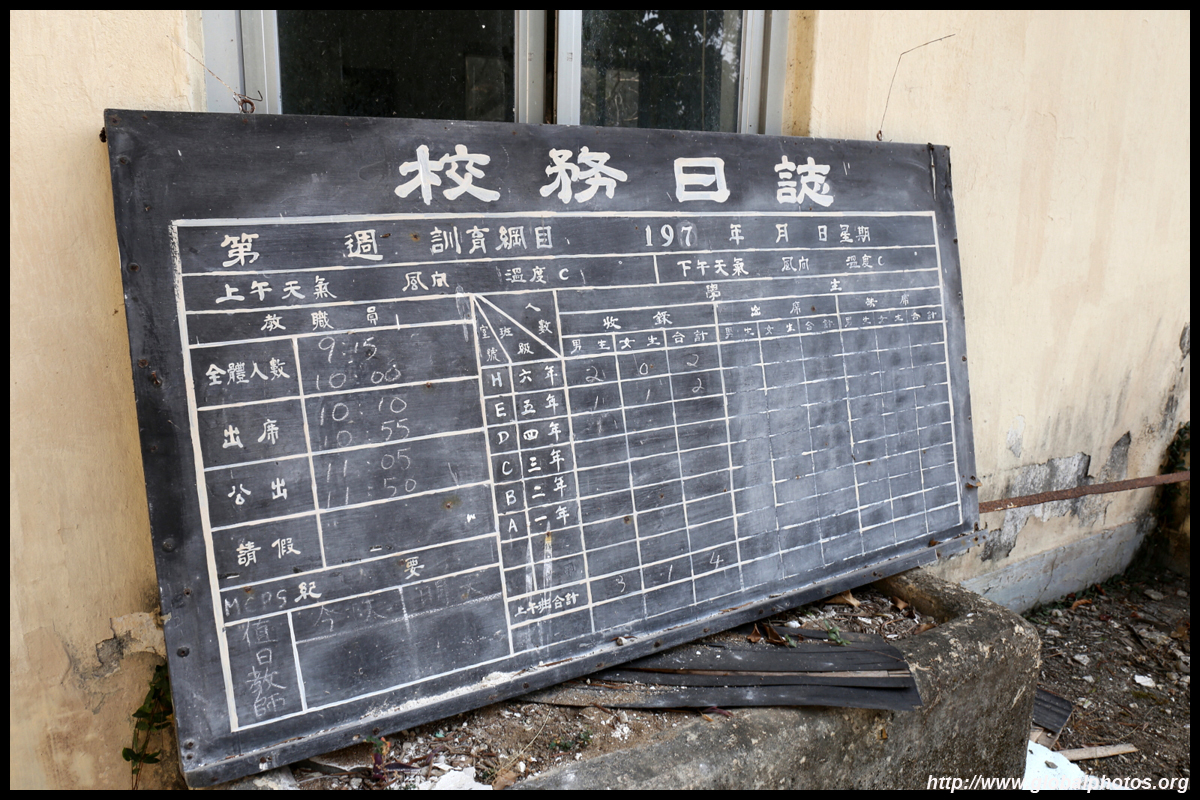 校務日誌
第 週 訓育綱目 197 年 月 日星期
上午天氣 風向 溫度C 下午天氣 風向 溫度C
教職員 人數 班級 室號 學生
收錄 出席 缺席
男生 女生 合計 男生 女生 合計 男生 女生 合計
全體人數 9:15
10:00
H 六年 2 0 2
E 五年 1 1 2
出席 10:10
10:55
D 四年
C 三年
公出 11:05
11:50
B 二年
A 一年
請假
紀要
MCPS
上午班合計 3 1 4
今天 明天
值日教師
http://www.g
lphotos.org